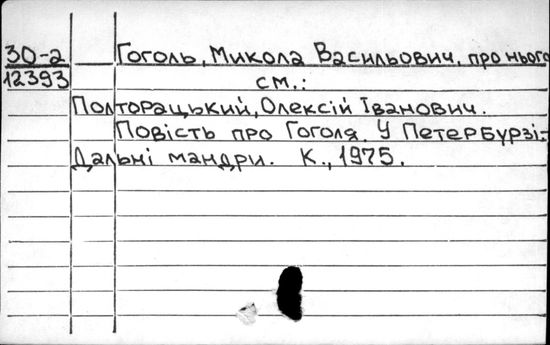 30-2 Гоголь, Микола Васильович, про нього
12393 см.:
Полторацький, Олексій Іванович.
Повість про Гоголя. У Петербурзі.-
Дальні мандри. К., 1975.